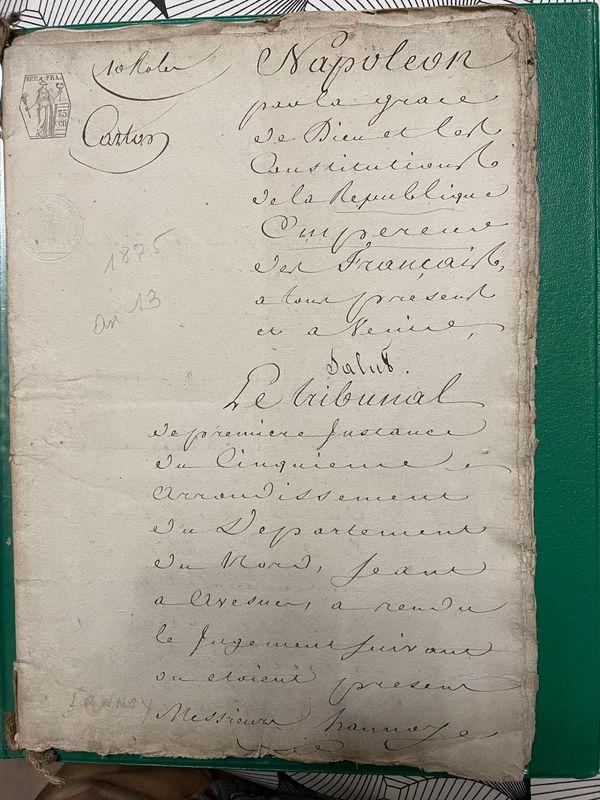 REP. FRA.
75
CEN
10 Roles
Carton
1875
an 13
Napoleon
par la grace
de Dieu et les
Constitutions
de la Republique
Empereur
des Français,
a tous present
et a venir,
Salut.
Le tribunal
de premiere Instance
du Cinquieme
arrondissement
du Departement
du Nord, seant
a avesnes, a rendu
le Jugement suivant
ou etoient present
Messieurs hannoye